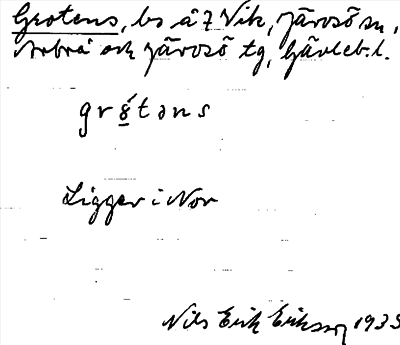 Grotens, bs å 7 Vik, Järvsö sn,
Arbrå och Järvsö tg, Gävleb.l.
grótəns
Ligger i Nor
Nils Erik Eriksson 1933